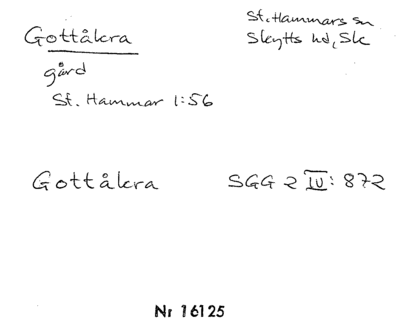 Gottåkra
St. Hammars sn
Skytts hd, Sk
gård
St. Hammar 1:56
Gottåkra SGG 2 IV: 872
Nr 16125